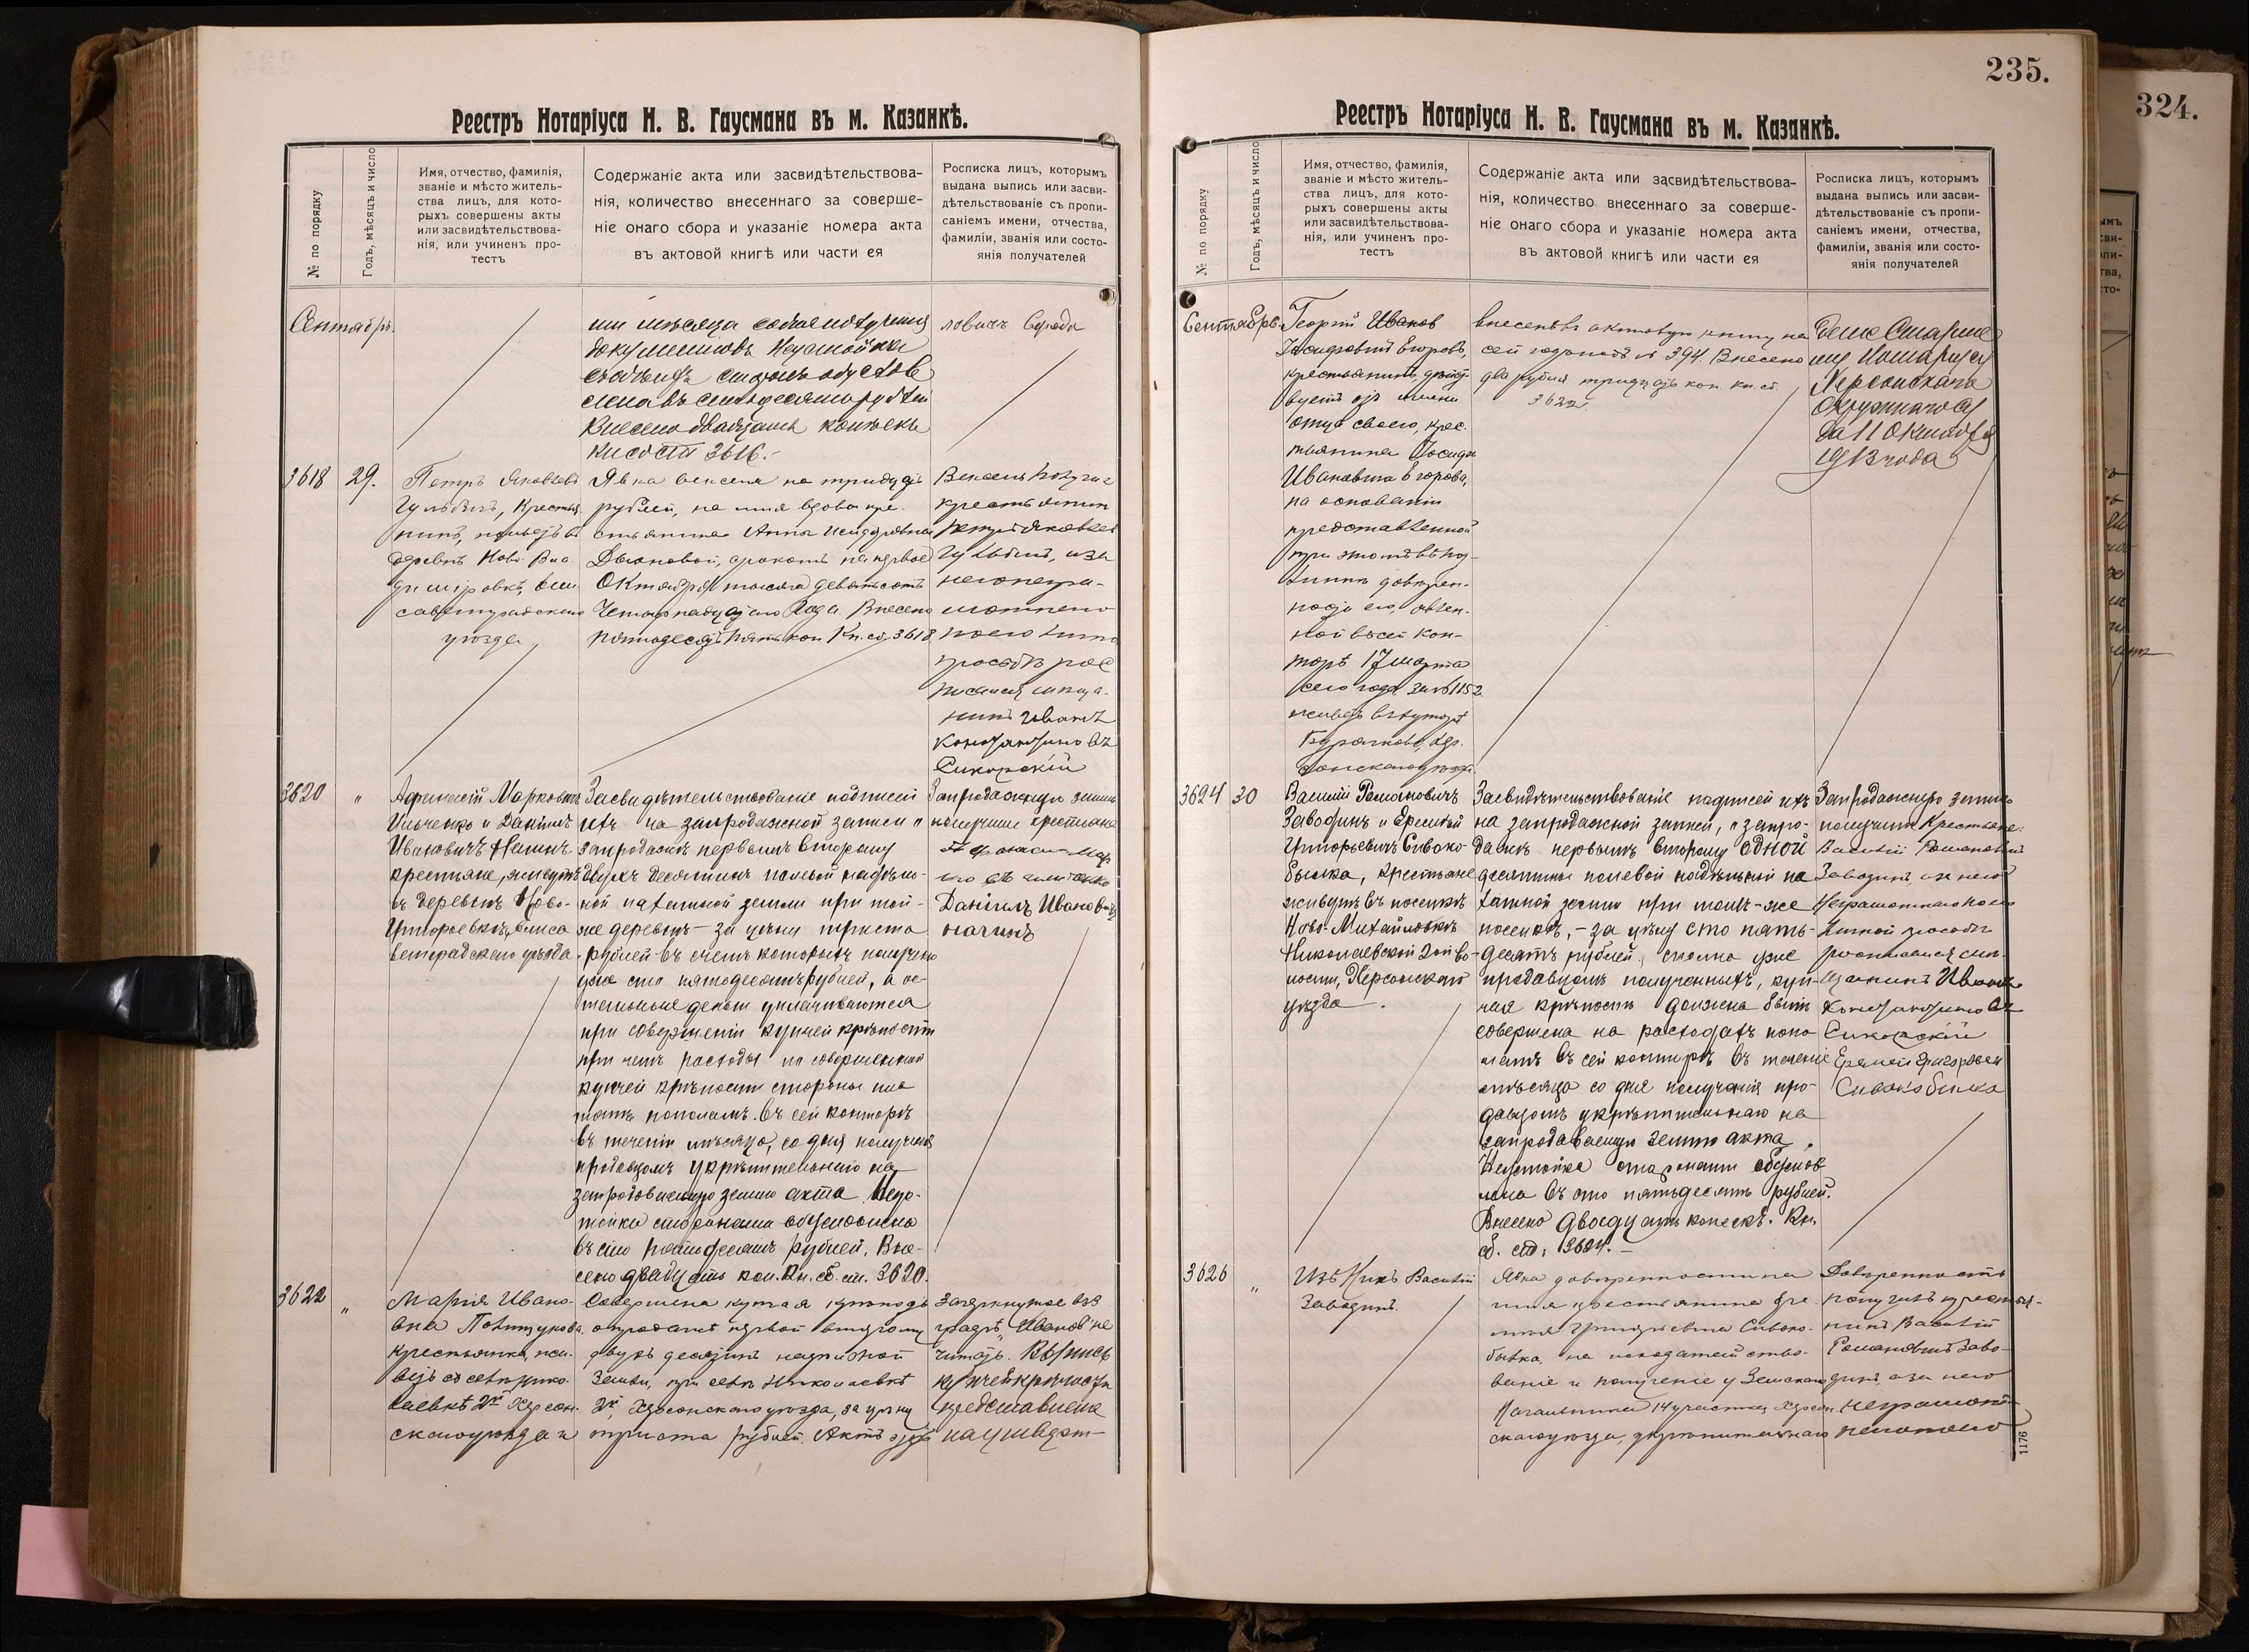 235.
324.
Реестръ Нотаріуса Н. В. Гаусмана въ м. Казанкѣ.
№ по порядку
Годъ, мѣсяцъ и число
Имя, отчество, фамилія,
званіе и мѣсто житель-
ства лицъ, для кото-
рыхъ совершены акты
или засвидѣтельствова-
нія, или учиненъ про-
тестъ
Содержаніе акта или засвидѣтельствова-
нія, количество внесеннаго за соверше-
ніе онаго сбора и указаніе номера акта
въ актовой книгѣ или части ея
Росписка лицъ, которымъ
выдана выпись или засви-
дѣтельствованіе съ пропи-
саніемъ имени, отчества,
фамиліи, званія или состо-
янія получателей
Сентябрь.
мѣсяца со дня полученія
документовъ Неустойка
сторонъ обуслов
лена въ семьдесятъ рублей
Внесено двадцать копѣекъ
Кн сб ст 3616.-
ловичъ Середа
3618
29.
Петръ Яковлевъ
Гульбитъ, крестья
нинъ, живетъ въ
деревнѣ Ново Вла
димировкѣ, Ели
саветградскаго
уѣзда
Явка векселя на тридцать
рублей, на имя вдовы кре-
стьянина Анны Исидоровны
Дьяковой, срокомъ на первое
Октября тысяча девятьсотъ
Четырнадцатаго Года. Внесено
пятьдесятъ пять коп Кн. сб. 3618
Вексель получилъ
крестьянинъ
Петръ Яковлев
Гульбитъ, а за
него негра-
мотнаго
по его личн
просьбѣ рос
писался мѣща-
нинъ Иванъ
Константиновъ
Сикорскій
3620
"
Афанасій Марковичъ
Ильченко и Даніилъ
Ивановичъ
крестьяне, живутъ
въ деревнѣ Ново-
Григорьевкѣ, Елиса
ветградскаго уѣзда.
Засвидѣтельствованіе подписей
ихъ на запродажной записи о
запродажѣ первымъ второму
двухъ десятинъ полевой надѣль-
ной пахатной земли при той-
же деревнѣ - за цѣну триста
рублей въ счетъ которыхъ получено
уже сто пятьдесятъ рублей, а ос-
тальныя деньги уплачиваются
при совершеніи купчей крѣпости
при чемъ расходы по совершенію
купчей крѣпости стороны пла
тятъ пополамъ. Въ сей конторѣ
въ теченіи мѣсяца, со дня полученія
продавцомъ укрѣпительнаго на
запродаваемую землю акта Неус-
тойка сторонами обусловлена
въ сто пятьдесятъ рублей. Вне-
сено двадцать коп. Кн. сб. ст. 3620.
Запродажную запись
получили крестьяне
Афанасій Мар
Даніилъ Ивановичъ
3622
"
Марія Ивано-
вна
крестьянка, жи-
ветъ въ селѣ Нико-
лаевкѣ 2й Херсон-
скаго уѣзда и
Совершена купчая крѣпость
о продажѣ первой второму
двухъ десятинъ надѣльной
земли, при селѣ Николаевкѣ
2й, Херсонскаго уѣзда, за цѣну
триста рублей. Актъ этотъ
Зачеркнутое въ 3
графѣ „Иванов" не
читать. Выпись
купчей крѣпости
представлена
на утвержд-
Реестръ Нотаріуса Н. В. Гаусмана въ м. Казанкѣ.
№ по порядку
Годъ, мѣсяцъ и число
Имя, отчество, фамилія,
званіе и мѣсто житель-
ства лицъ, для кото-
рыхъ совершены акты
или засвидѣтельствова-
нія, или учиненъ про-
тестъ
Содержаніе акта или засвидѣтельствова-
нія, количество внесеннаго за соверше-
ніе онаго сбора и указаніе номера акта
въ актовой книгѣ или части ея
Росписка лицъ, которымъ
выдана выпись или засви-
дѣтельствованіе съ пропи-
саніемъ имени, отчества,
фамиліи, званія или состо-
янія получателей
Сентябрь
Георгій Иванов
Іосифовичъ Егоровъ,
крестьянинъ, дѣйст
вуетъ отъ имени
отца своего, крес-
тьянина Іосифа
Ивановича Егорова,
на основаніи
представленной
при этомъ въ под-
линникѣ довѣрен-
ности его, явлен-
ной въ сей кон-
торѣ 17 марта
сего года за № 1152
живетъ въ хуторѣ
Бурачково, Хер-
сонскаго уѣзда.
внесенъ въ актовую книгу на
сей годъ подъ № 394. Внесено
два рубля тридцать коп. Кн. сб.
3622.
деніе Старше
му Нотаріусу
Херсонскаго
Окружнаго Су
да 11 Октября
1913 года
3624
30
Василій Романовичъ
Заводинъ и Еремѣй
Григорьевичъ Сивоко-
былка, крестьяне
живутъ въ поселкѣ
Ново-Михайловкѣ
Николаевской 2ой во-
лости, Херсонскаго
уѣзда.
Засвидѣтельствованіе подписей ихъ
на запродажной записи, о запро-
дажѣ первымъ второму одной
десятины полевой надѣльной па
хатной земли при томъ-же
поселкѣ, - за цѣну сто пять-
десятъ рублей, сполна уже
продавцомъ полученныхъ, куп-
чая крѣпость должна быть
совершена на расходахъ попо
ламъ въ сей конторѣ въ теченіе
мѣсяца со дня полученія про-
давцомъ укрѣпительнаго на
запродаваемую землю акта.
Неустойка сторонами обуслов
лена въ сто пятьдесятъ рублей.
Внесено двадцать копеекъ. Кн.
сб. ст. 3624. -
Запродажную запись
получили Крестьяне:
Василій Романовичъ
Заводинъ, а за него
Неграмотнаго по его
личной просьбѣ
росписался мѣ-
щанинъ Иванъ
Константиновъ
Сикорскій
Еремей Григорьевич
Сивокобылка
3626
"
Изъ Нихъ Василій
Заводинъ.
Явка довѣренности на
имя крестьянина Ере-
мѣя Григорьевича Сивоко-
былка, на ходатайство-
ваніе и полученіе у Земскаго
Начальника 14 участка Херсон
скаго уѣзда, укрѣпительнаго
Довѣренность
получилъ крестья-
нинъ Василій
Романовичъ Заво-
динъ, а за него
неграмот-
наго
1176